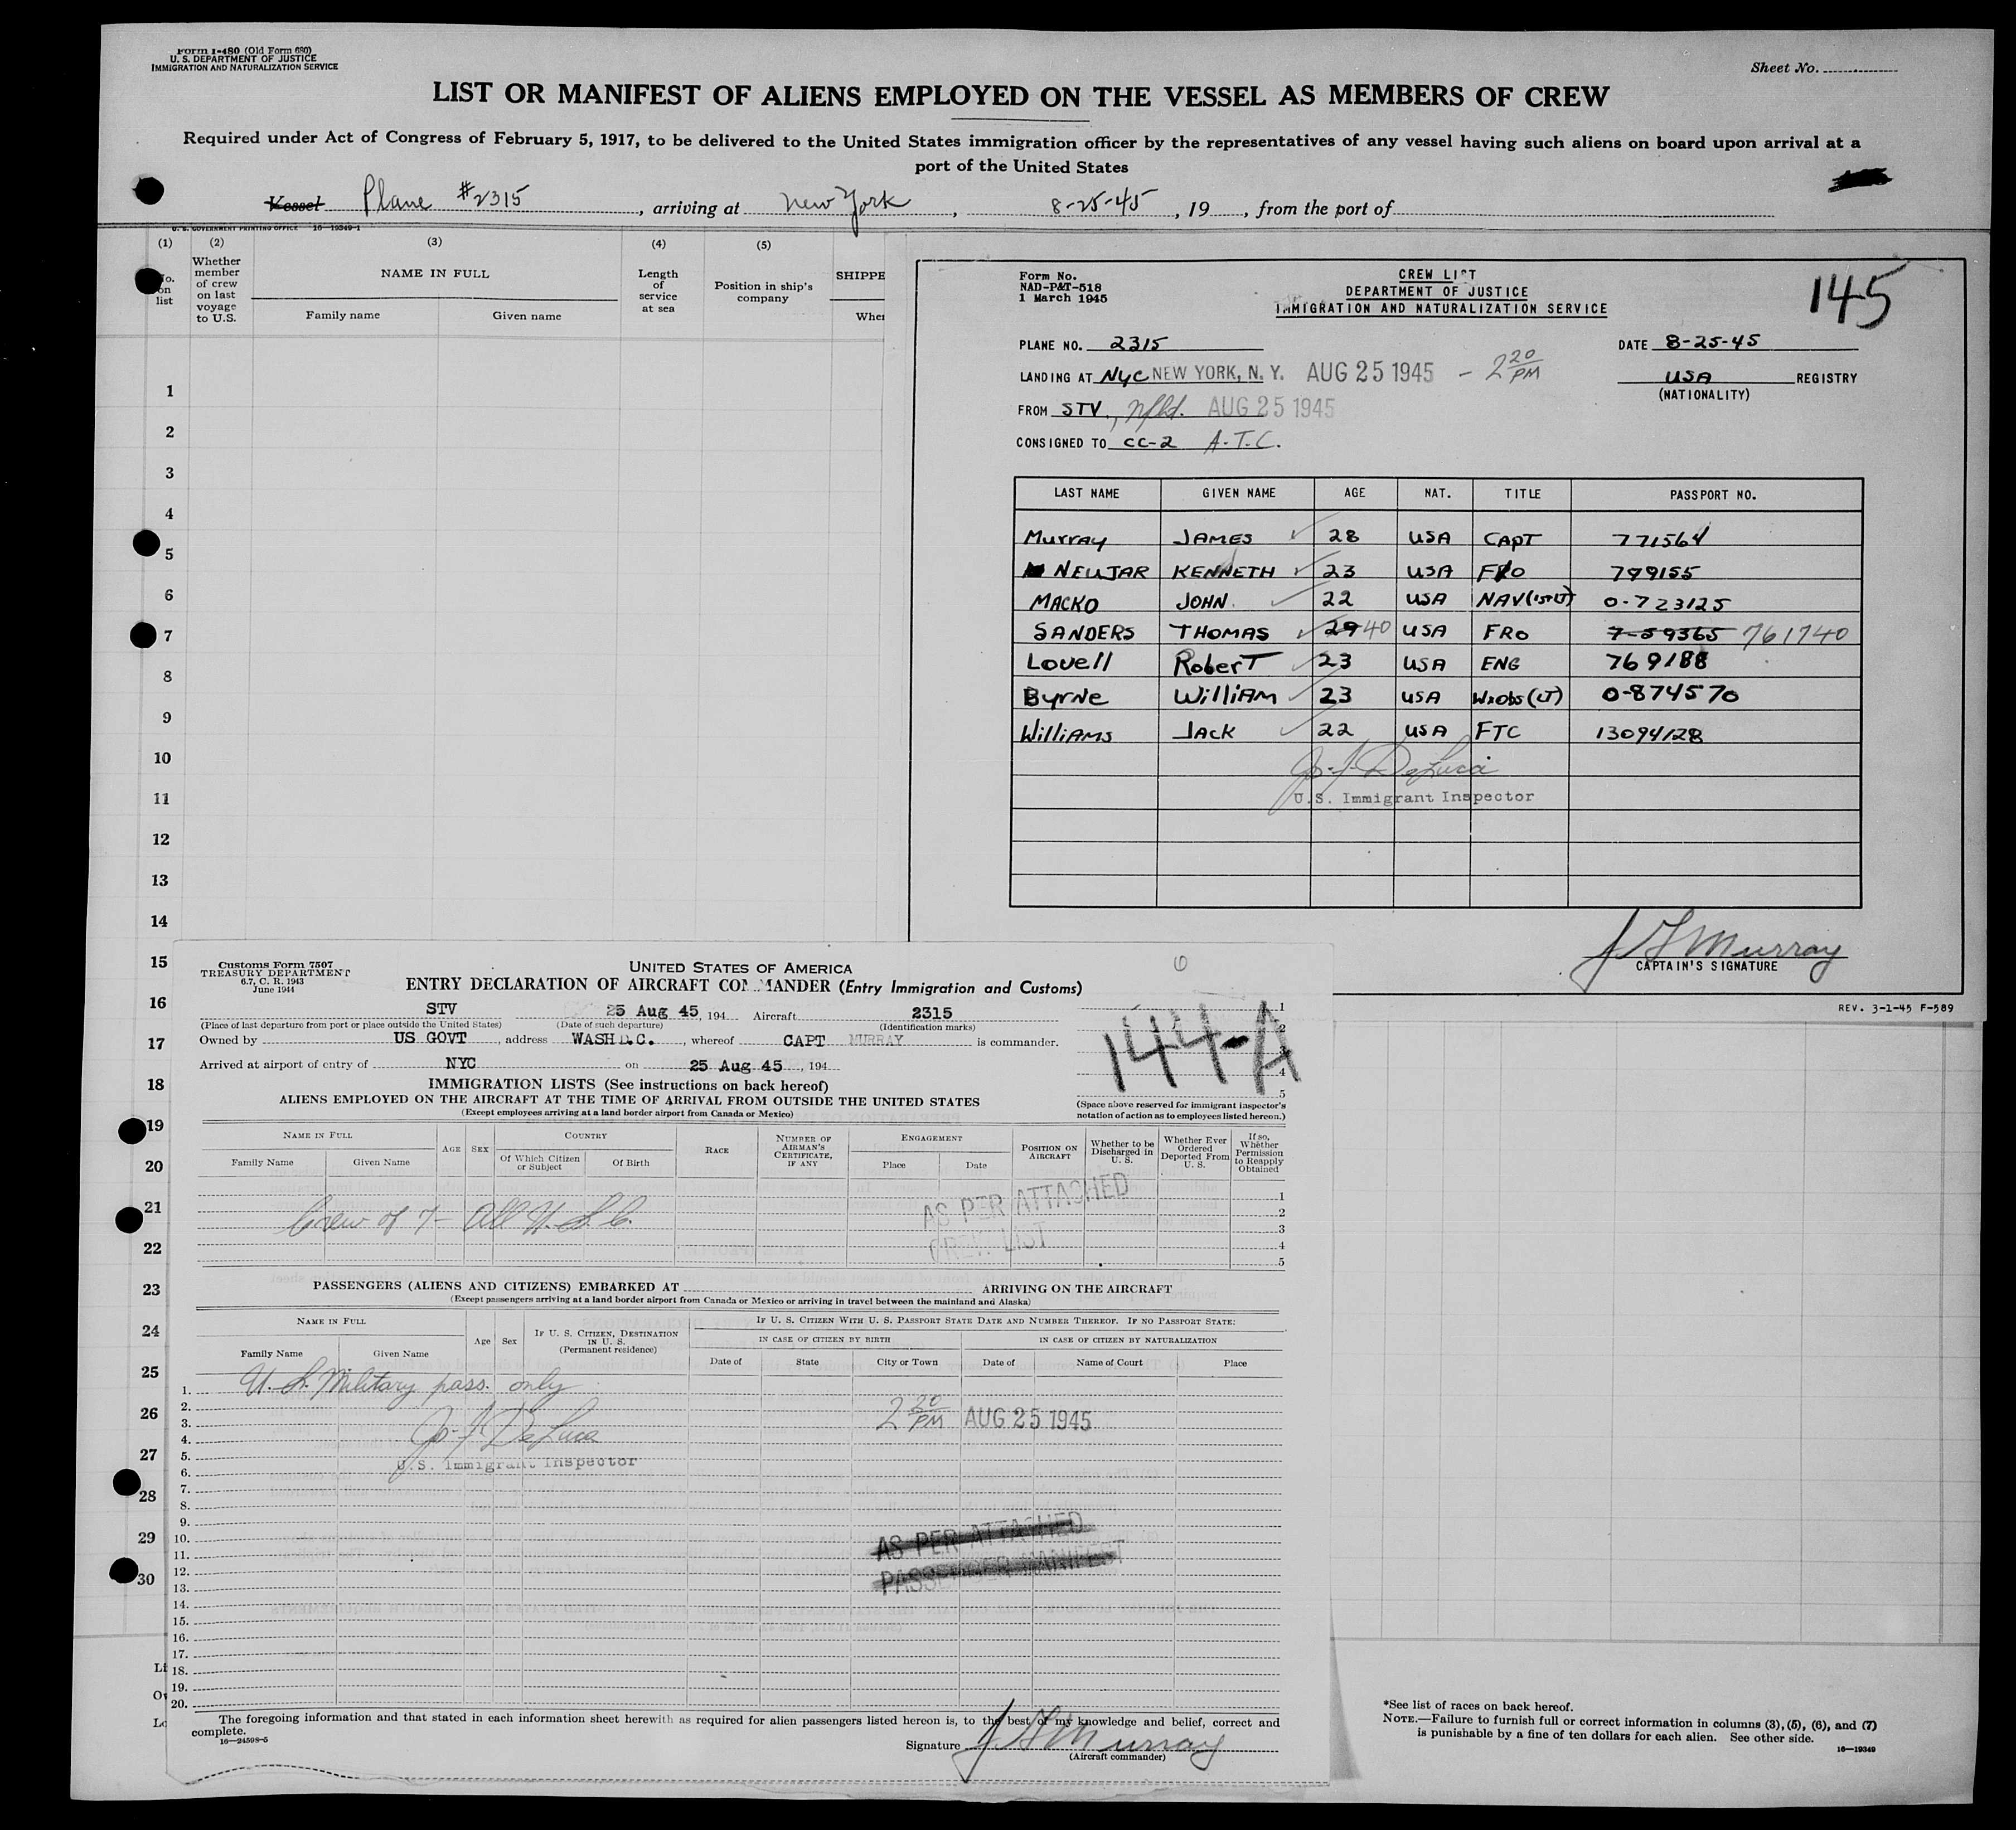 Form I-480 (Old Form 680)
U. S. DEPARTMENT OF JUSTICE
IMMIGRATION AND NATURALIZATION SERVICE
Sheet No.
LIST OR MANIFEST OF ALIENS EMPLOYED ON THE VESSEL AS MEMBERS OF CREW
Required under Act of Congress of February 5, 1917, to be delivered to the United States immigration officer by the representatives of any vessel having such aliens on board upon arrival at a
port of the United States
Vessel Plane #2315, arriving at New York, 8-25-45, 19, from the port of
U. S. GOVERNMENT PRINTING OFFICE 16-19349-1
(1) (2) (3) (4) (5)
No. on list
Whether member of crew on last voyage to U.S.
NAME IN FULL
Family name Given name
Length of service at sea
Position in ship's company
SHIPPE
Whe
1
2
3
4
5
6
7
8
9
10
11
12
13
14
15
16
17
18
19
20
21
22
23
24
25
26
27
28
29
30
Form No.
NAD-P&T-518
1 March 1945
CREW LIST
DEPARTMENT OF JUSTICE
IMMIGRATION AND NATURALIZATION SERVICE
145
PLANE NO. 2315 DATE 8-25-45
LANDING AT NYC NEW YORK, N. Y. AUG 25 1945 - 2 20 PM USA REGISTRY
(NATIONALITY)
FROM STV., Nfld. AUG 25 1945
CONSIGNED TO CC-2 A.T.C.
LAST NAME GIVEN NAME AGE NAT. TITLE PASSPORT NO.
Murray JAMES 28 USA CAPT 771564
NEUJAR KENNETH 23 USA F/O 799155
MACKO JOHN 22 USA NAV(1st LT) 0-723125
SANDERS THOMAS 29 40 USA FRO 7-59365 761740
Lovell RoberT 23 USA ENG 769188
Byrne William 23 USA WxObs(LT) 0-874570
Williams Jack 22 USA FTC 13094128
Jos. J. DeLuca
U.S. Immigrant Inspector
J G Murray
CAPTAIN'S SIGNATURE
REV. 3-1-45 F-589
Customs Form 7507
TREASURY DEPARTMENT
6.7, C. R. 1943
June 1944
UNITED STATES OF AMERICA
ENTRY DECLARATION OF AIRCRAFT COMMANDER (Entry Immigration and Customs)
STV 25 Aug 45, 194 Aircraft 2315
(Place of last departure from port or place outside the United States) (Date of such departure) (Identification marks)
Owned by US GOVT, address WASH D.C., whereof CAPT MURRAY is commander.
Arrived at airport of entry of NYC on 25 Aug 45, 194
144-A
1
2
3
4
5
(Space above reserved for immigrant inspector's notation of action as to employees listed hereon.)
IMMIGRATION LISTS (See instructions on back hereof)
ALIENS EMPLOYED ON THE AIRCRAFT AT THE TIME OF ARRIVAL FROM OUTSIDE THE UNITED STATES
(Except employees arriving at a land border airport from Canada or Mexico)
NAME IN FULL AGE SEX COUNTRY RACE NUMBER OF AIRMAN'S CERTIFICATE, IF ANY ENGAGEMENT POSITION ON AIRCRAFT Whether to be Discharged in U. S. Whether Ever Ordered Deported From U. S. If so, Whether Permission to Reapply Obtained
Family Name Given Name Of Which Citizen or Subject Of Birth Place Date
Crew of 7- All U.S.C.
AS PER ATTACHED
CREW LIST
1
2
3
4
5
PASSENGERS (ALIENS AND CITIZENS) EMBARKED AT ARRIVING ON THE AIRCRAFT
(Except passengers arriving at a land border airport from Canada or Mexico or arriving in travel between the mainland and Alaska)
NAME IN FULL Age Sex IF U. S. CITIZEN, DESTINATION IN U. S. (Permanent residence) IF U. S. CITIZEN WITH U. S. PASSPORT STATE DATE AND NUMBER THEREOF. IF NO PASSPORT STATE:
IN CASE OF CITIZEN BY BIRTH IN CASE OF CITIZEN BY NATURALIZATION
Family Name Given Name Date of State City or Town Date of Name of Court Place
1. U. S. Military pass. only
2.
3. 2 20 PM AUG 25 1945
4. Jos. J. DeLuca
5.
6. U.S. Immigrant Inspector
7.
8.
9.
10. AS PER ATTACHED
11.
12. PASSENGER MANIFEST
13.
14.
15.
16.
17.
18.
19.
20.
The foregoing information and that stated in each information sheet herewith as required for alien passengers listed hereon is, to the best of my knowledge and belief, correct and
complete.
16—24598-5
Signature J G Murray
(Aircraft commander)
*See list of races on back hereof.
NOTE.—Failure to furnish full or correct information in columns (3), (5), (6), and (7)
is punishable by a fine of ten dollars for each alien. See other side.
16—19349